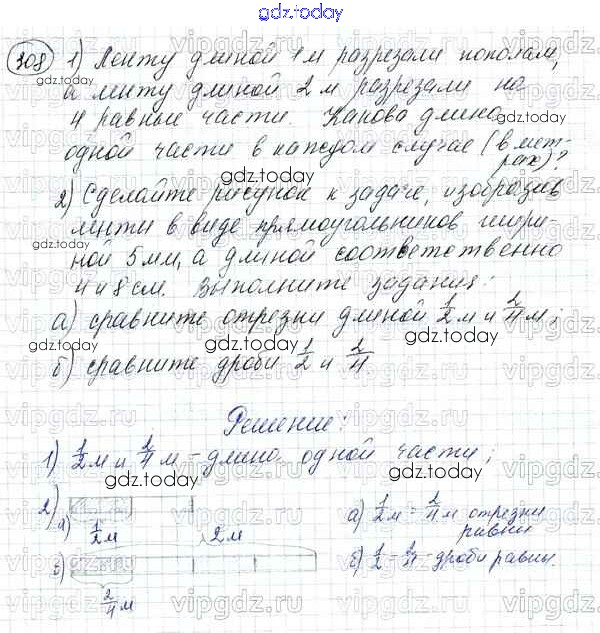 gdz.today
308 1) Ленту длиной 1 м разрезали пополам,
а ленту длиной 2 м разрезали на
4 равные части. Какова длина
одной части в каждом случае (в мет-
рах)?
2) Сделайте рисунок к задаче, изобразив
ленты в виде прямоугольников шири-
ной 5 мм, а длиной соответственно
4 и 8 см. Выполните задания:
а) сравните отрезки длиной 1/2 м и 2/4 м;
б) сравните дроби 1/2 и 2/4.
Решение:
1) 1/2 м и 2/4 м - длина одной части;
2)
а)
1/2 м
2 м
б)
2/4 м
а) 1/2 м = 2/4 м отрезки
равны
б) 1/2 = 2/4 - дроби равны.